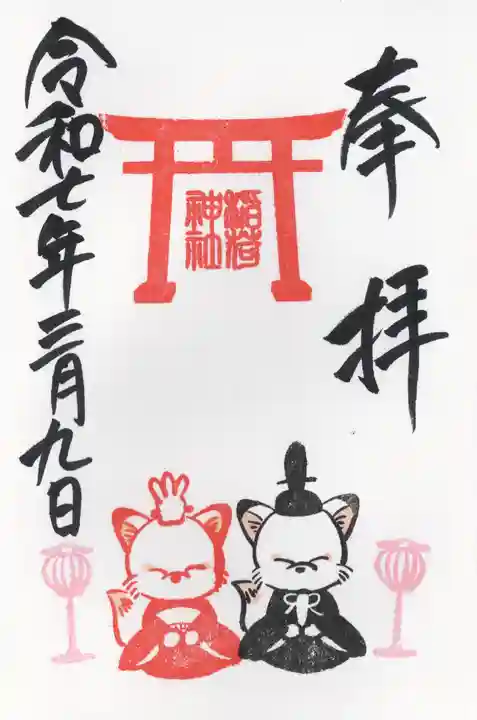 奉拝
稲荷
神社
令和七年三月九日